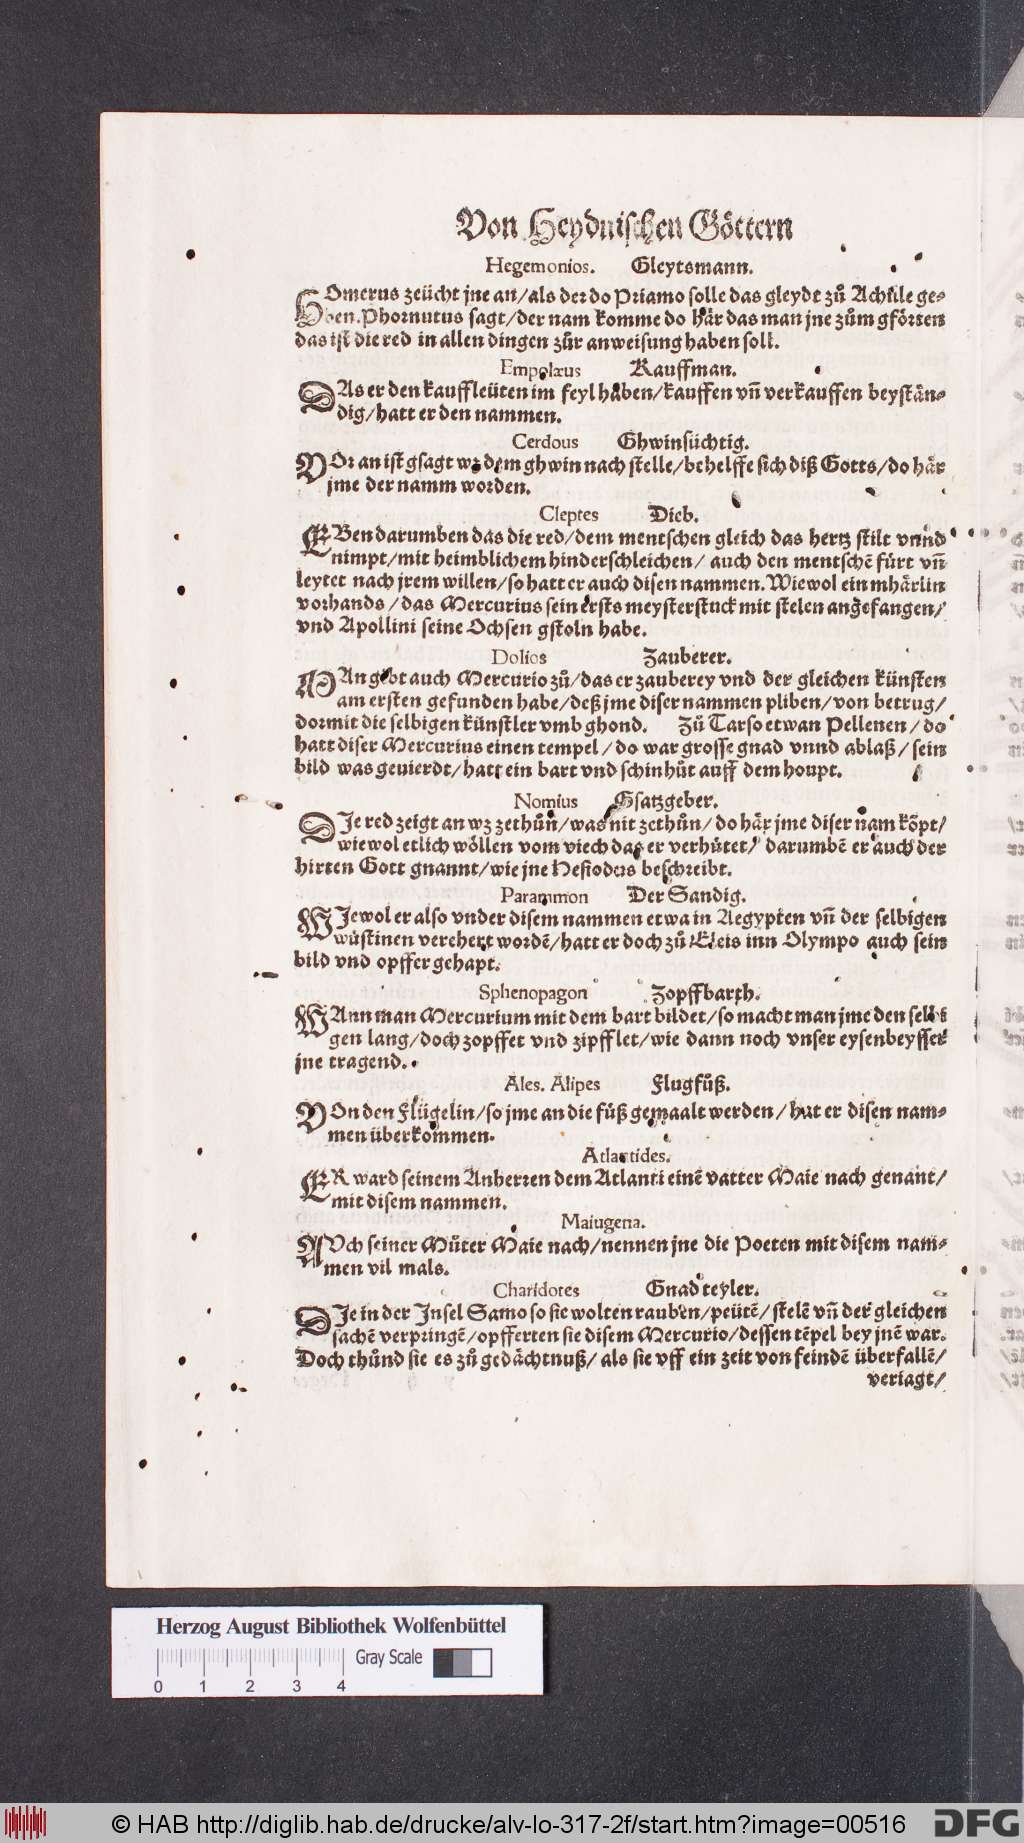 Von Heydnischen Göttern
Hegemonios. Gleytsmann.
HOmerus zeücht jne an/als der do Priamo solle das gleydt zů Achille ge-
ben. Phornutus sagt/der nam komme do här das man jne zům gförten
das ist die red in allen dingen zůr anweisung haben soll.
Empolæus Kauffman.
DAs er den kauffleüten im feyl haben/kauffen vñ verkauffen beystän-
dig/hatt er den nammen.
Cerdous Ghwinsüchtig.
VOr an ist gsagt wz dem ghwin nach stelle/behelffe sich diß Gotts/do här
jme der namm worden.
Cleptes Dieb.
EBen darumben das die red/dem mentschen gleich das hertz stilt vnnd
nimpt/mit heimblichem hinderschleichen/ auch den mentschẽ fürt vñ
leytet nach jrem willen/so hatt er auch disen nammen. Wiewol ein mhärlin
vorhands/das Mercurius sein ersts meysterstuck mit stelen angefangen/
vnd Apollini seine Ochsen gstoln habe.
Dolios Zauberer.
MAn gibt auch Mercurio zů/das er zauberey vnd der gleichen künsten
am ersten gefunden habe/deß jme diser nammen pliben/von betrug/
dormit die selbigen künstler vmb ghond. Zů Tarso etwan Pellenen/do
hatt diser Mercurius einen tempel/do war grosse gnad vnnd ablaß/sein
bild was geuierdt/hatt ein bart vnd schinhůt auff dem houpt.
Nomius Gsatzgeber.
DJe red zeigt an wz zethůn/was nit zethůn/do här jme diser nam kõpt/
wiewol etlich wöllen vom viech das er verhütet/ darumbẽ er auch der
hirten Gott gnannt/wie jne Hesiodus beschreibt.
Parammon Der Sandig.
WJewol er also vnder disem nammen etwa in Aegypten vñ der selbigen
wůstinen verehert wordẽ/hatt er doch zů Eleis inn Olympo auch sein
bild vnd opffer gehapt.
Sphenopagon Zopffbarth.
WAnn man Mercurium mit dem bart bildet/so macht man jme den selbi
gen lang/doch zopffet vnd zipfflet/wie dann noch vnser eysenbeysser
jne tragend.
Ales. Alipes Flugfůß.
VOn den Flügelin/so jme an die füß gemaalt werden/hat er disen nam-
men überkommen.
Atlantides.
ER ward seinem Anherren dem Atlanti einẽ vatter Maie nach genant/
mit disem nammen.
Maiugena.
AVch seiner Můter Maie nach/nennen jne die Poeten mit disem nam-
men vil mals.
Charidotes Gnadteyler.
DJe in der Jnsel Samo so sie wolten rauben/peütẽ/stelẽ vñ der gleichen
sachẽ verpringẽ/opfferten sie disem Mercurio/dessen tẽpel bey jnẽ war.
Doch thůnd sie es zů gedächtnuß/als sie vff ein zeit von feindẽ überfallẽ/
veriagt/
Herzog August Bibliothek Wolfenbüttel
Gray Scale
0 1 2 3 4
© HAB http://diglib.hab.de/drucke/alv-lo-317-2f/start.htm?image=00516
DFG